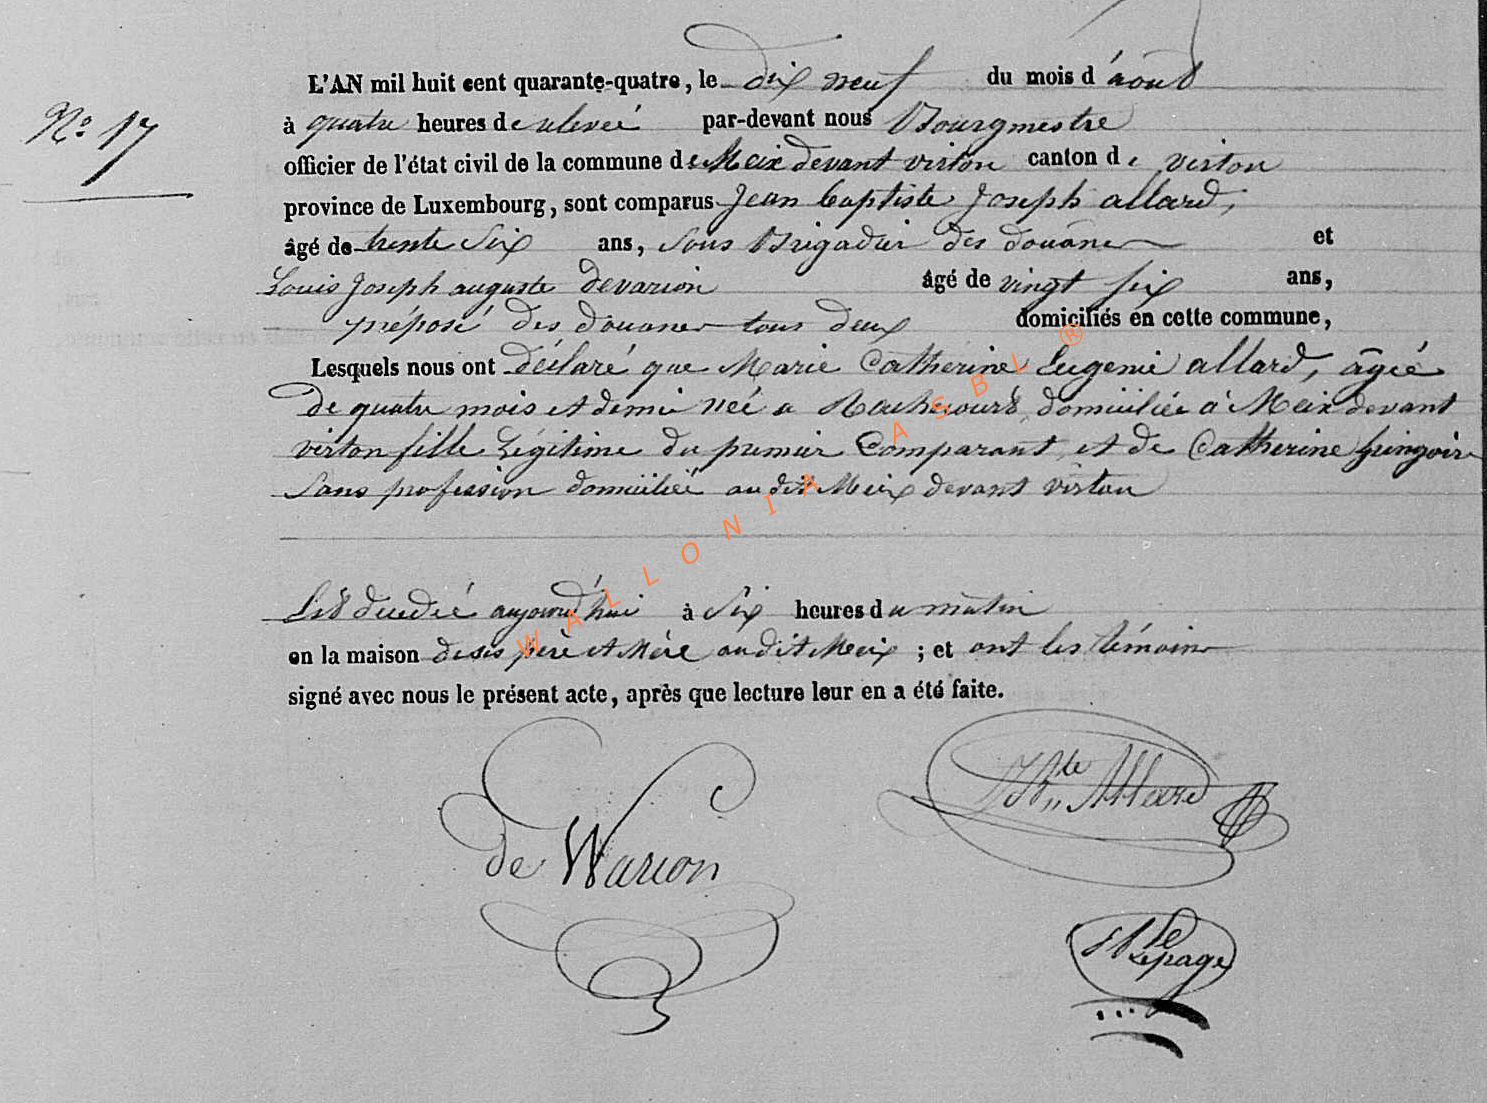 N° 17
L'AN mil huit cent quarante-quatre, le dix neuf du mois d'aout
à quatre heures de relevée par-devant nous Bourgmestre
officier de l'état civil de la commune de Meix devant virton canton de virton
province de Luxembourg, sont comparus Jean baptiste Joseph allard,
âgé de trente Six ans, Sous Brigadier des douanes et
Louis Joseph auguste devarion âgé de vingt six ans,
préposé des douanes tous deux domiciliés en cette commune,
Lesquels nous ont déclaré que Marie Catherine Eugenie allard, âgée
de quatre mois et demi née a Rachecourt domiciliée à Meix devant
virton fille Légitime du premier Comparant et de Catherine Gringoire
Sans profession domiciliée au dit Meix devant virton
Est decedée aujourd'hui à Six heures du matin
en la maison de ses père et Mère audit Meix ; et ont les témoins
signé avec nous le présent acte, après que lecture leur en a été faite.
de Warion
JBte Allard
Lepage
WALLONIA ASBL ®